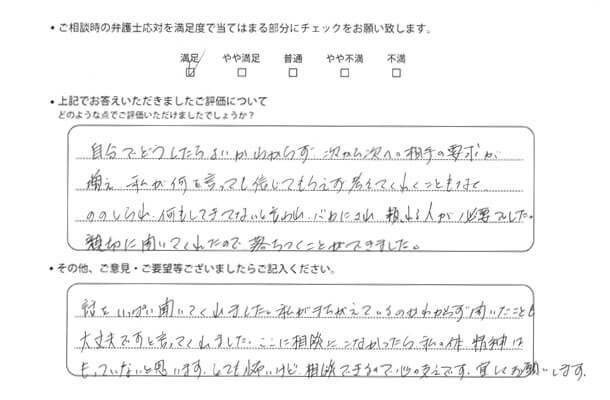 • ご相談時の弁護士応対を満足度で当てはまる部分にチェックをお願い致します。
満足 やや満足 普通 やや不満 不満
• 上記でお答えいただきましたご評価について
どのような点でご評価いただけましたでしょうか？
自分でどうしたらよいかわからず 次から次への相手の要求が
増え 私が何を言っても信じてもらえず 考えてくれることもなく
ののしられ 何もしてきてないと言われ バカにされ 頼れる人が必要でした。
親切に聞いてくれたので 落ちつくことができました。
• その他、ご意見・ご要望等ございましたらご記入ください。
話をいっぱい聞いてくれました。私がまちがえているのかわからず聞いたことも
大丈夫ですと言ってくれました。ここに相談にこなかったら、私の体、精神は
もっていないと思います。とても怖いけど、相談できるので心の支えです。宜しくお願いします。